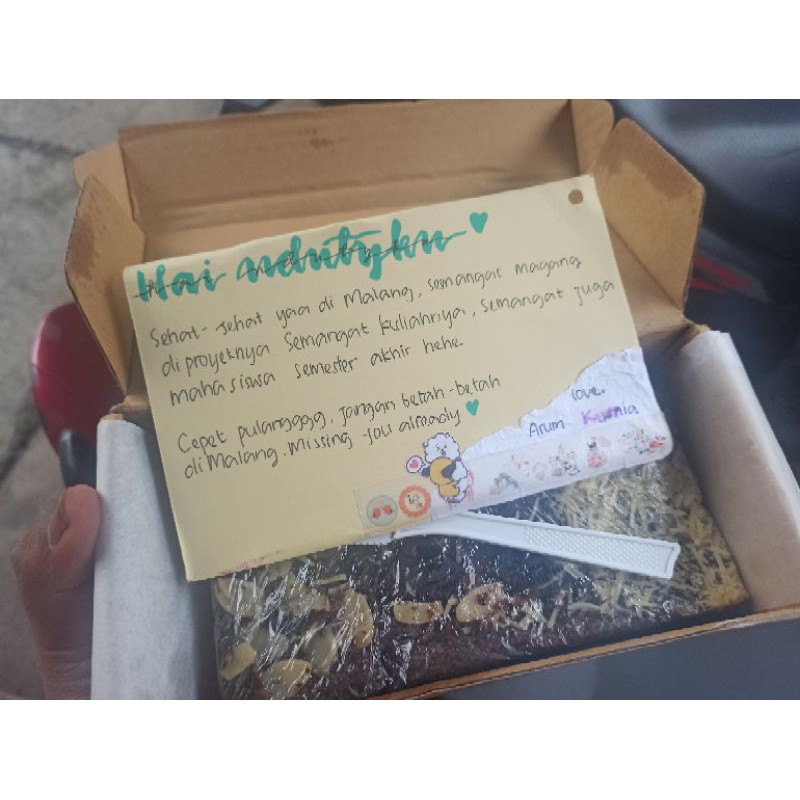 Hai ndutyku
Sehat-sehat yaa di Malang, semangat magang
di proyeknya Semangat kuliahnya, Semangat juga
mahasiswa semester akhir hehe.
Cepet pulangggg, jangan betah-betah
di Malang. Missing you already
love.
Arum Kurnia